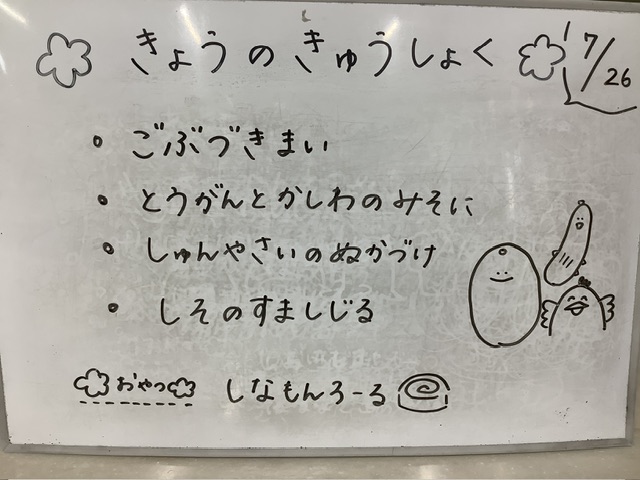 きょうのきゅうしょく 7/26
・ごぶづきまい
・とうがんとかしわのみそに
・しゅんやさいのぬかづけ
・しそのすましじる
おやつ しなもんろーる